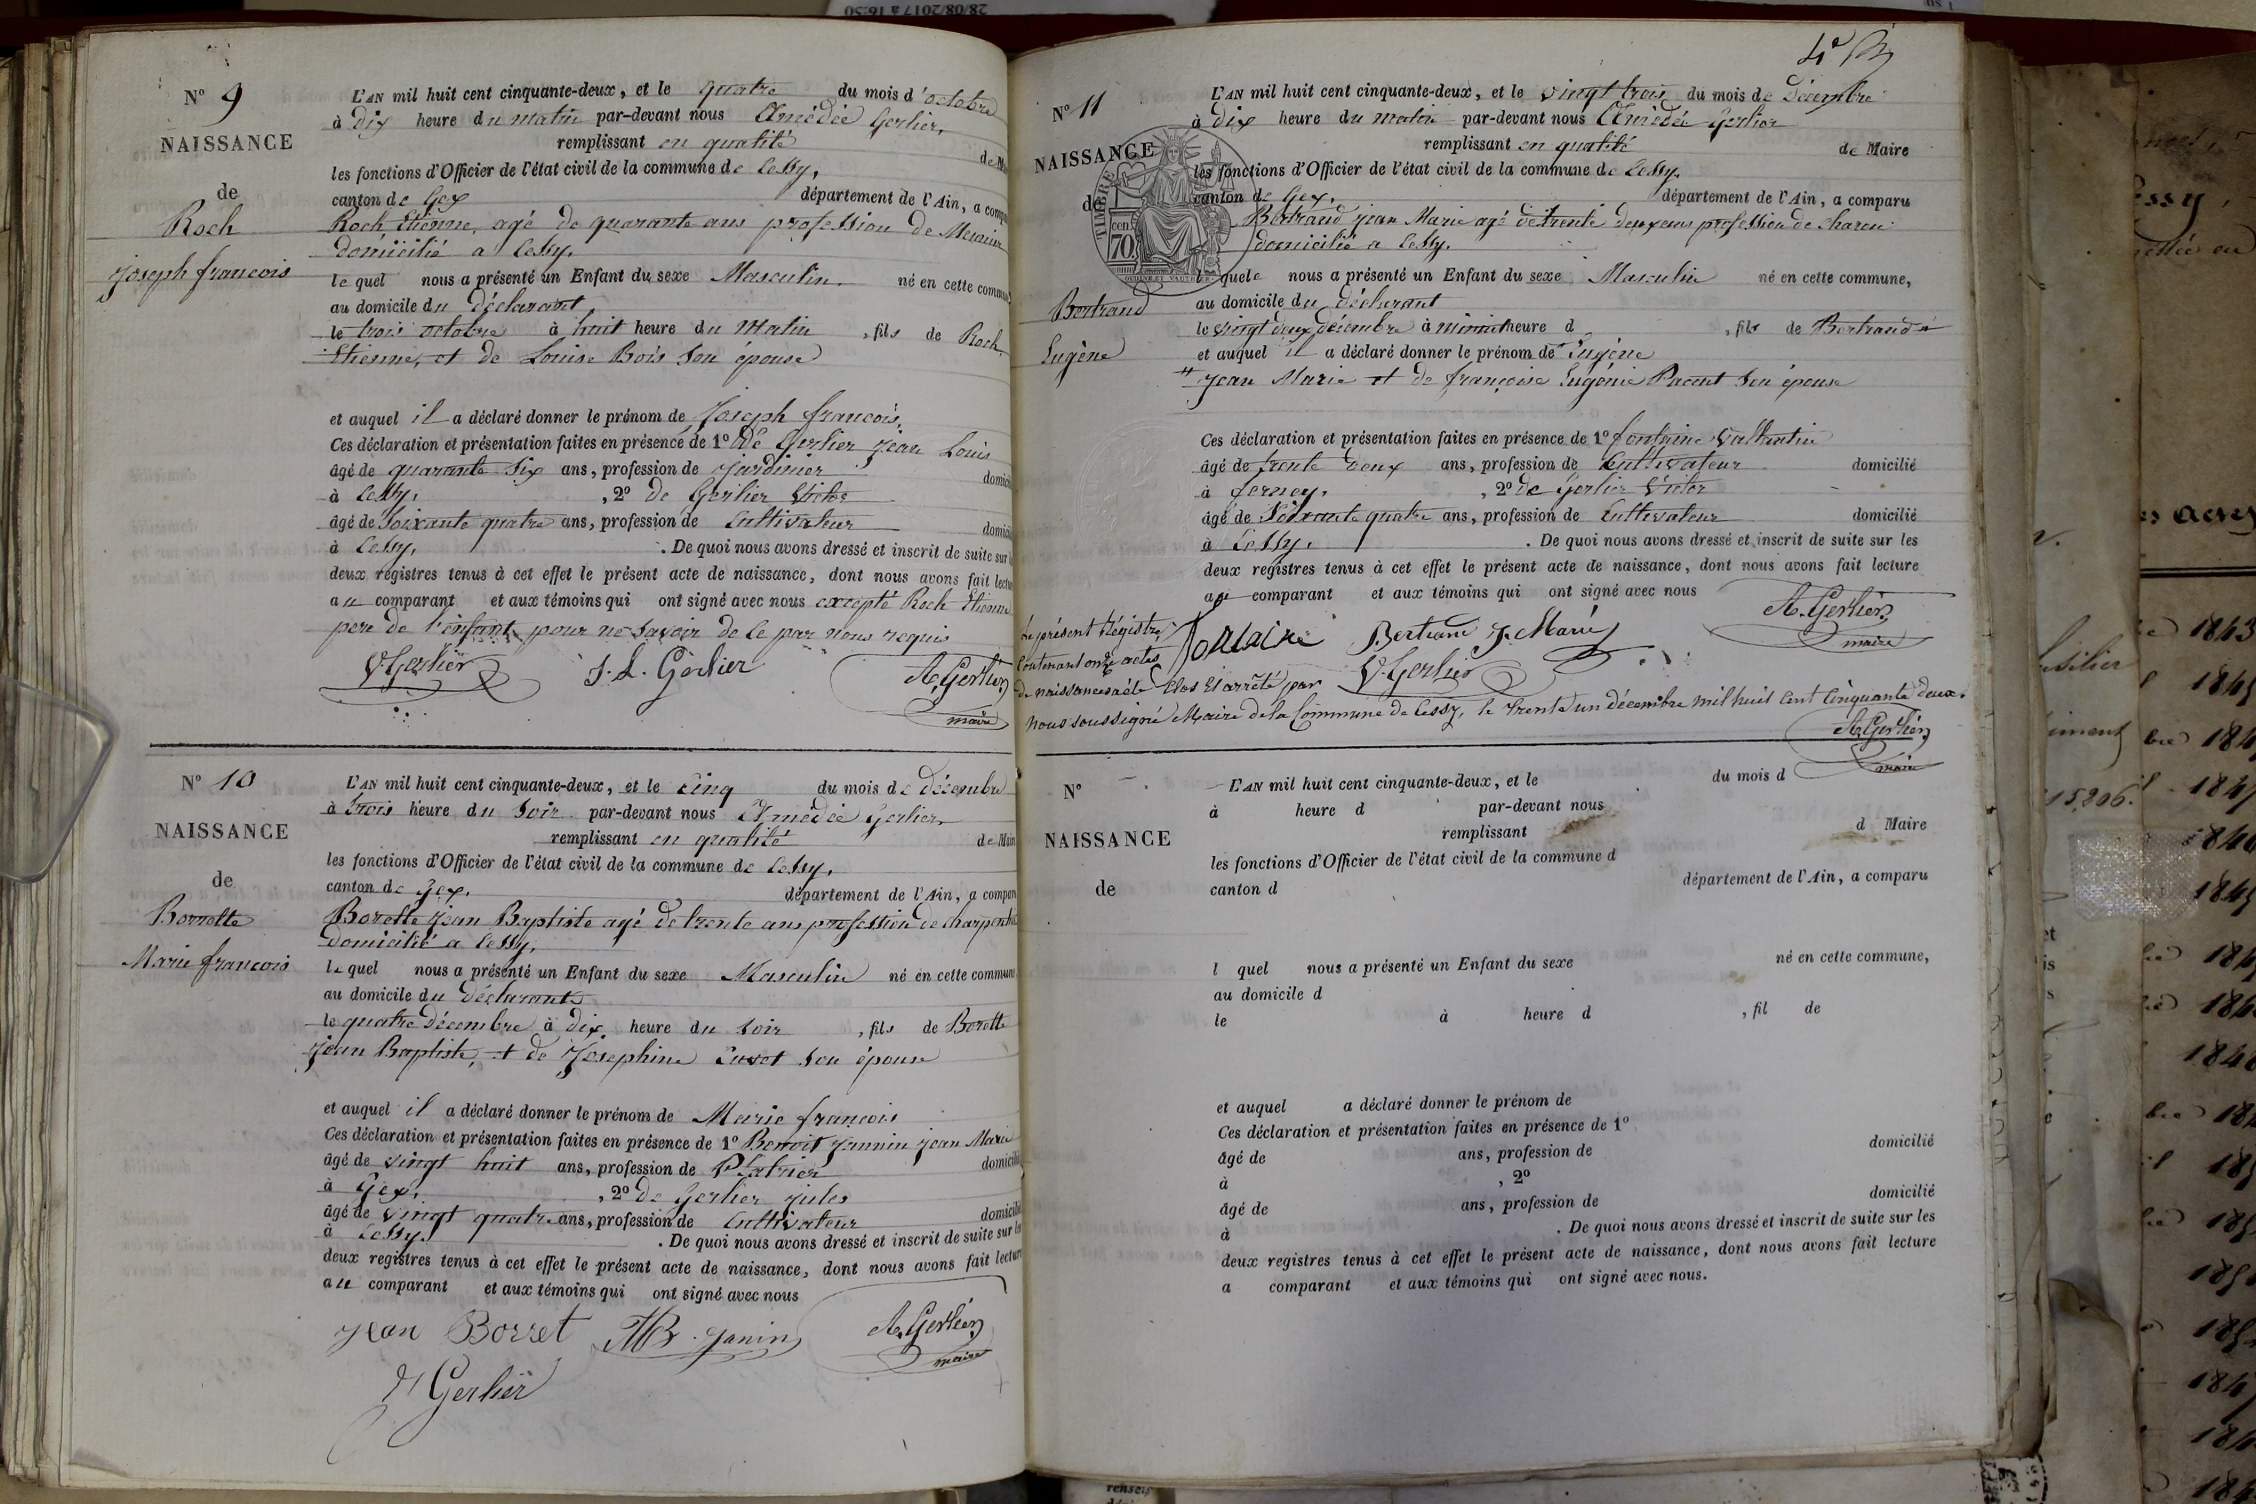 28/08/2017 à 16:50
N° 9
NAISSANCE
de
Roch
Joseph francois
L'AN mil huit cent cinquante-deux, et le quatre du mois d'octobre
à dix heure du matin par-devant nous Amédée Gerlier,
remplissant en qualité de
les fonctions d'Officier de l'état civil de la commune de Cessy,
canton de Gex département de l'Ain, a
Roch Etienne, agé de quarante ans profession de
domicilié a Cessy.
le quel nous a présenté un Enfant du sexe Masculin né en cette
au domicile du déclarant
le trois octobre à huit heure du matin, fils de Roch
Etienne, et de Louise Bois son épouse
et auquel il a déclaré donner le prénom de Joseph francois.
Ces déclaration et présentation faites en présence de 1° de Gerlier Jean Louis
âgé de quarante six ans, profession de Jardinier
à Cessy, , 2° de Gerlier Victor
âgé de soixante quatre ans, profession de Cultivateur
à Cessy. . De quoi nous avons dressé et inscrit de suite sur
deux registres tenus à cet effet le présent acte de naissance, dont nous avons fait
au comparant et aux témoins qui ont signé avec nous excepté Roch Etienne
pere de l'enfant, pour ne savoir de ce par nous requis
V. Gerlier J. L. Gerlier A. Gerlier
maire
N° 10
NAISSANCE
de
Borrette
Marie francois
L'AN mil huit cent cinquante-deux, et le cinq du mois de décembre
à trois heure du soir par-devant nous Amédée Gerlier,
remplissant en qualité de
les fonctions d'Officier de l'état civil de la commune de Cessy,
canton de Gex. département de l'Ain, a
Borette Jean Baptiste agé de trente ans profession de
domicilié a Cessy.
le quel nous a présenté un Enfant du sexe Masculin né en cette
au domicile du déclarant
le quatre décembre à dix heure du soir, fils de Borette
Jean Baptiste, et de Josephine son épouse
et auquel il a déclaré donner le prénom de Marie francois
Ces déclaration et présentation faites en présence de 1° Benoit Jannin Jean Marie
âgé de vingt huit ans, profession de Platrier
à Gex, , 2° de Gerlier Jules
âgé de vingt quatre ans, profession de Cultivateur
à Cessy. . De quoi nous avons dressé et inscrit de suite sur
deux registres tenus à cet effet le présent acte de naissance, dont nous avons fait
au comparant et aux témoins qui ont signé avec nous
Jean Borret Janin A. Gerlier
maire
Gerlier
N° 11
NAISSANCE
de
Bertrand
Eugène
TIMBRE
70
L'AN mil huit cent cinquante-deux, et le vingt trois du mois de décembre
à dix heure du matin par-devant nous Amédée Gerlier
remplissant en qualité de Maire
les fonctions d'Officier de l'état civil de la commune de Cessy.
canton de Gex, département de l'Ain, a comparu
Bertrand jean Marie agé de trente deux ans profession de
domicilié a Cessy.
nous a présenté un Enfant du sexe Masculin né en cette commune,
au domicile du déclarant
le vingt deux décembre à minuit heure d , fils de Bertrand
et auquel il a déclaré donner le prénom de Eugène
Jean Marie et de françoise Eugénie son épouse
Ces déclaration et présentation faites en présence de 1° fontaine
âgé de trente deux ans, profession de Cultivateur domicilié
à ferney. , 2° de Gerlier Victor
âgé de soixante quatre ans, profession de Cultivateur domicilié
à Cessy. . De quoi nous avons dressé et inscrit de suite sur les
deux registres tenus à cet effet le présent acte de naissance, dont nous avons fait lecture
au comparant et aux témoins qui ont signé avec nous
A. Gerlier
maire
fontaine Bertrand J. Marie
V. Gerlier
Le présent Régistre
Contenant onze actes
de naissances a été Clos et arrêté par
nous soussigné Maire de la Commune de Cessy, le trente un décembre mil huit cent cinquante deux.
A. Gerlier
maire
N°
NAISSANCE
de
L'AN mil huit cent cinquante-deux, et le du mois d
à heure d par-devant nous
remplissant d Maire
les fonctions d'Officier de l'état civil de la commune d
canton d département de l'Ain, a comparu
l quel nous a présenté un Enfant du sexe né en cette commune,
au domicile d
le à heure d , fil de
et auquel a déclaré donner le prénom de
Ces déclaration et présentation faites en présence de 1°
âgé de ans, profession de domicilié
à , 2°
âgé de ans, profession de domicilié
à . De quoi nous avons dressé et inscrit de suite sur les
deux registres tenus à cet effet le présent acte de naissance, dont nous avons fait lecture
a comparant et aux témoins qui ont signé avec nous.
1843